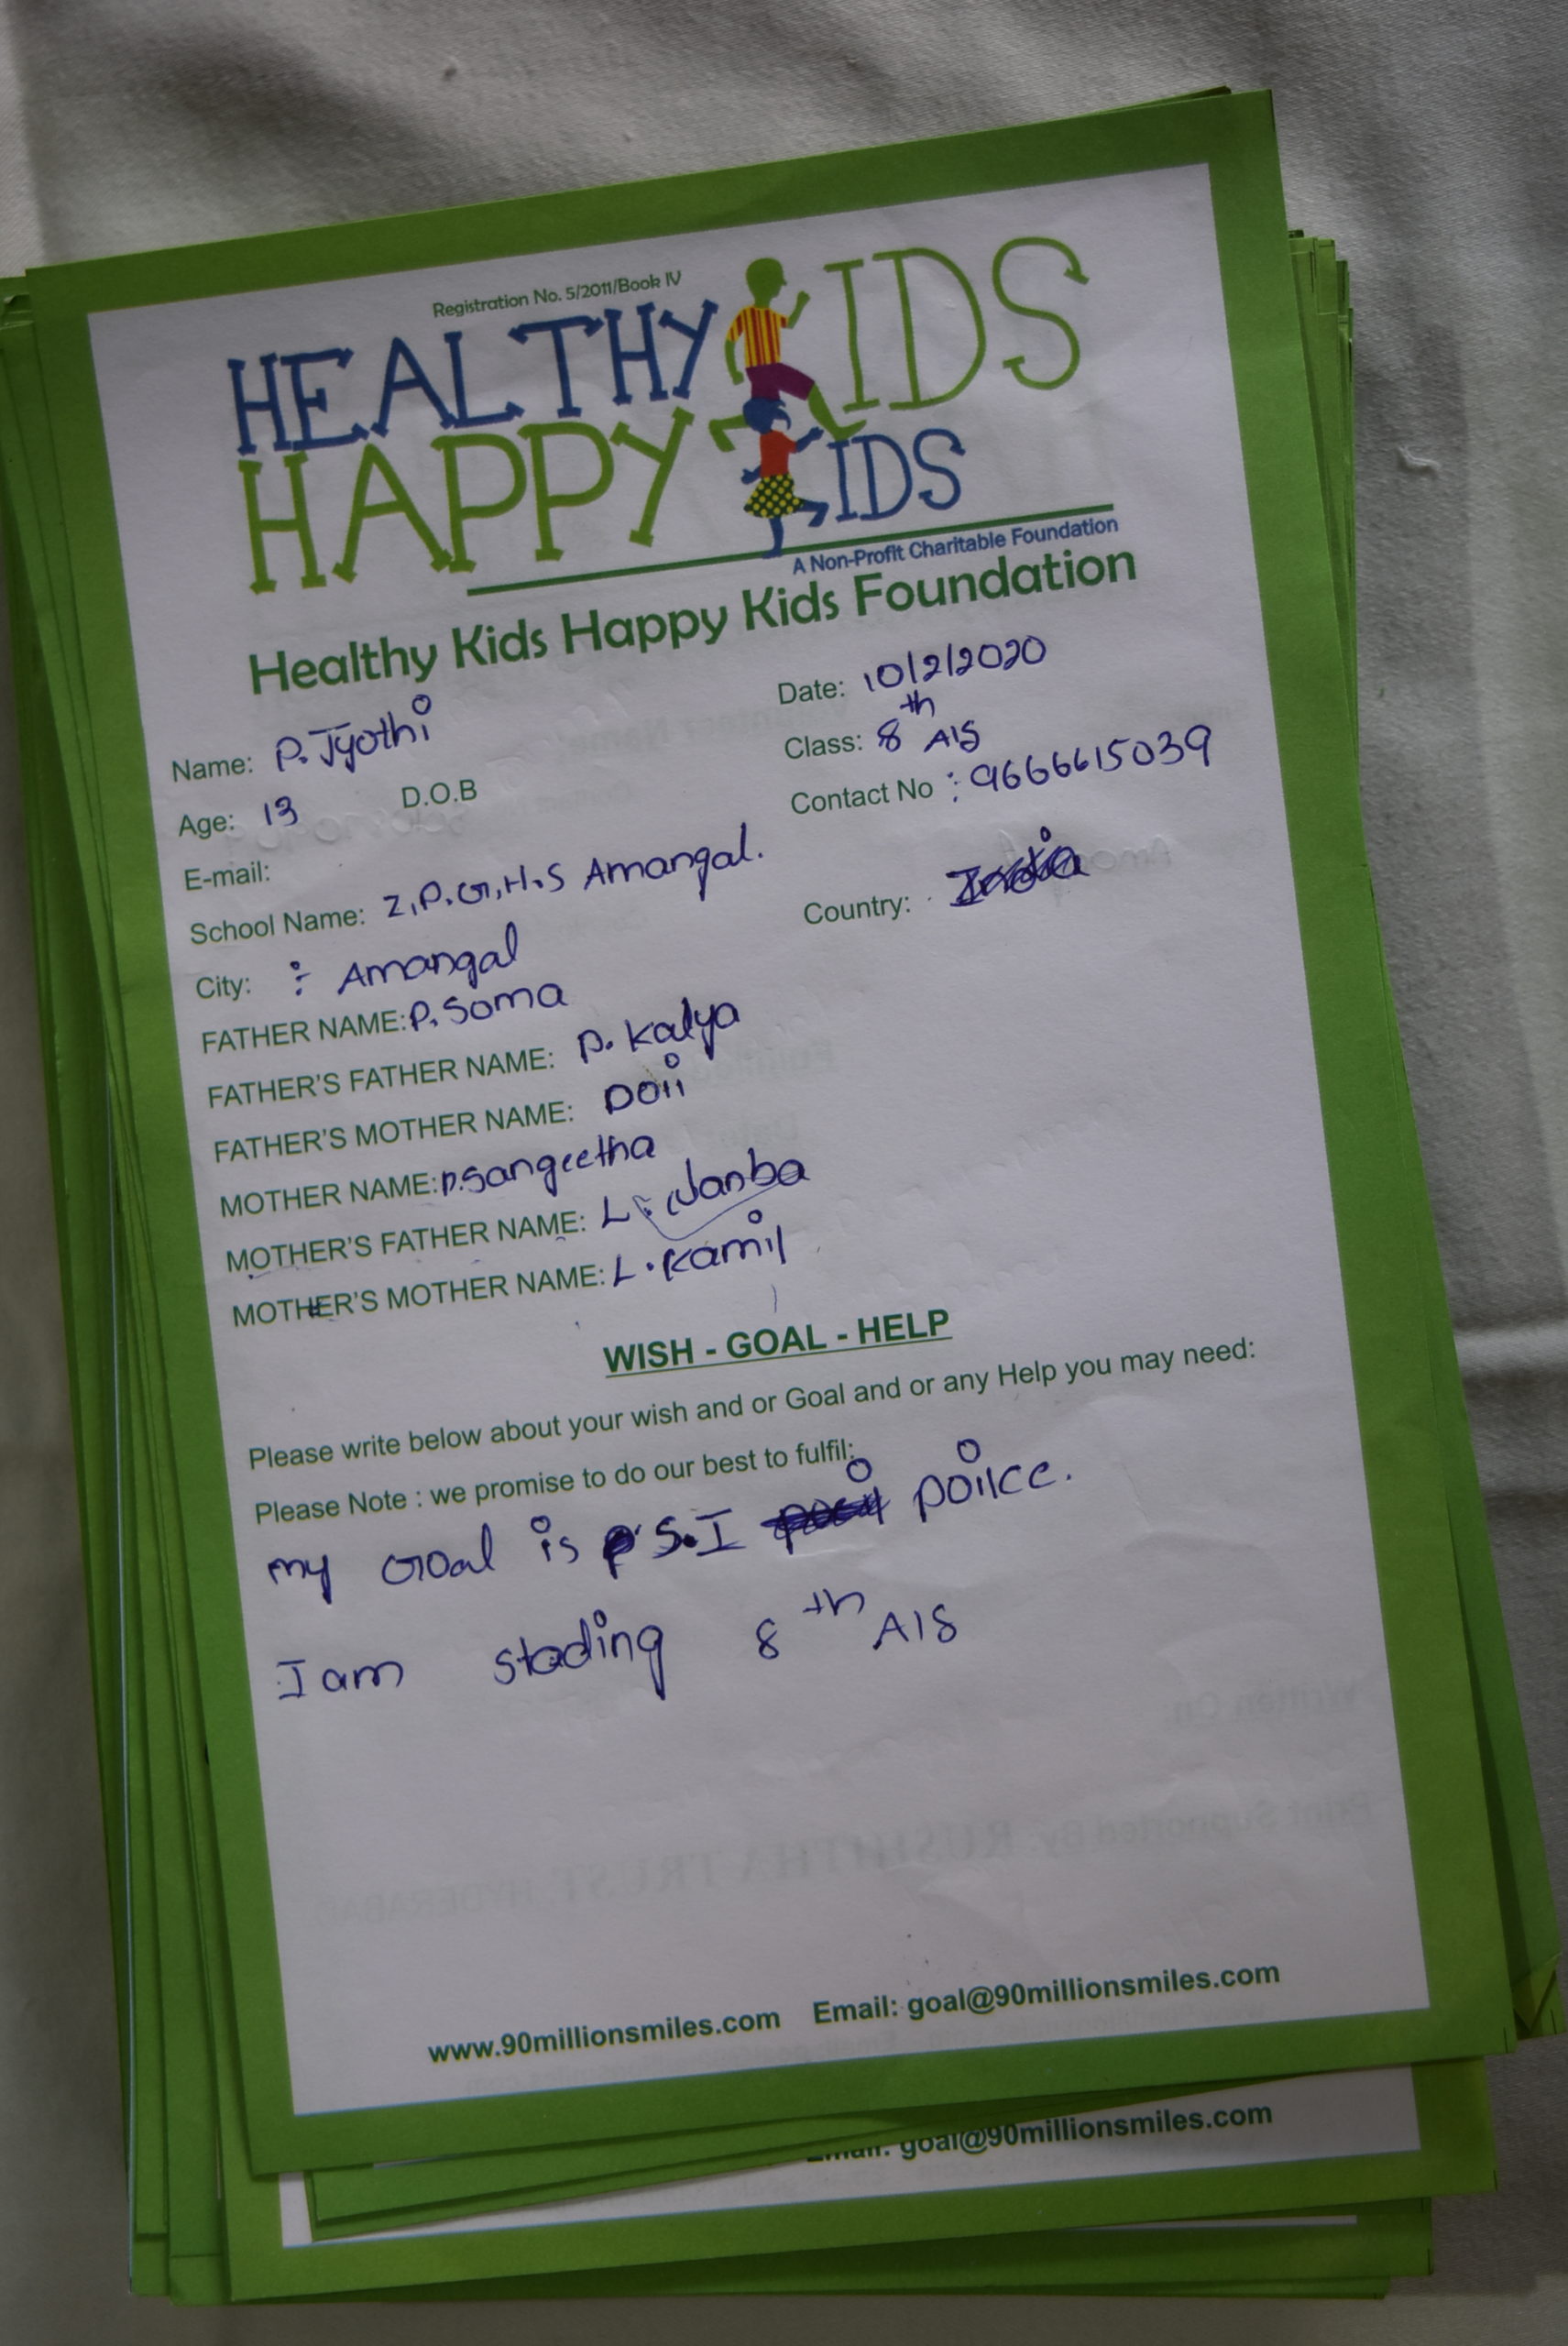 Registration No. 5/2011/Book IV
HEALTHY KIDS
HAPPY KIDS
A Non-Profit Charitable Foundation
Healthy Kids Happy Kids Foundation
Date: 10/2/2020
Name: P. Jyothi
Class: 8th A/S
Age: 13 D.O.B
Contact No : 9666615039
E-mail:
School Name: Z.P.G.H.S Amangal.
Country: India
City: : Amangal
FATHER NAME: P. Soma
FATHER'S FATHER NAME: P. Kalya
FATHER'S MOTHER NAME: Doii
MOTHER NAME: P. Sangeetha
MOTHER'S FATHER NAME: L. Janba
MOTHER'S MOTHER NAME: L. Kamil
WISH - GOAL - HELP
Please write below about your wish and or Goal and or any Help you may need:
Please Note : we promise to do our best to fulfil:
my Goal is S.I poilce.
I am stading 8th A/S
www.90millionsmiles.com Email: goal@90millionsmiles.com
Email: goal@90millionsmiles.com